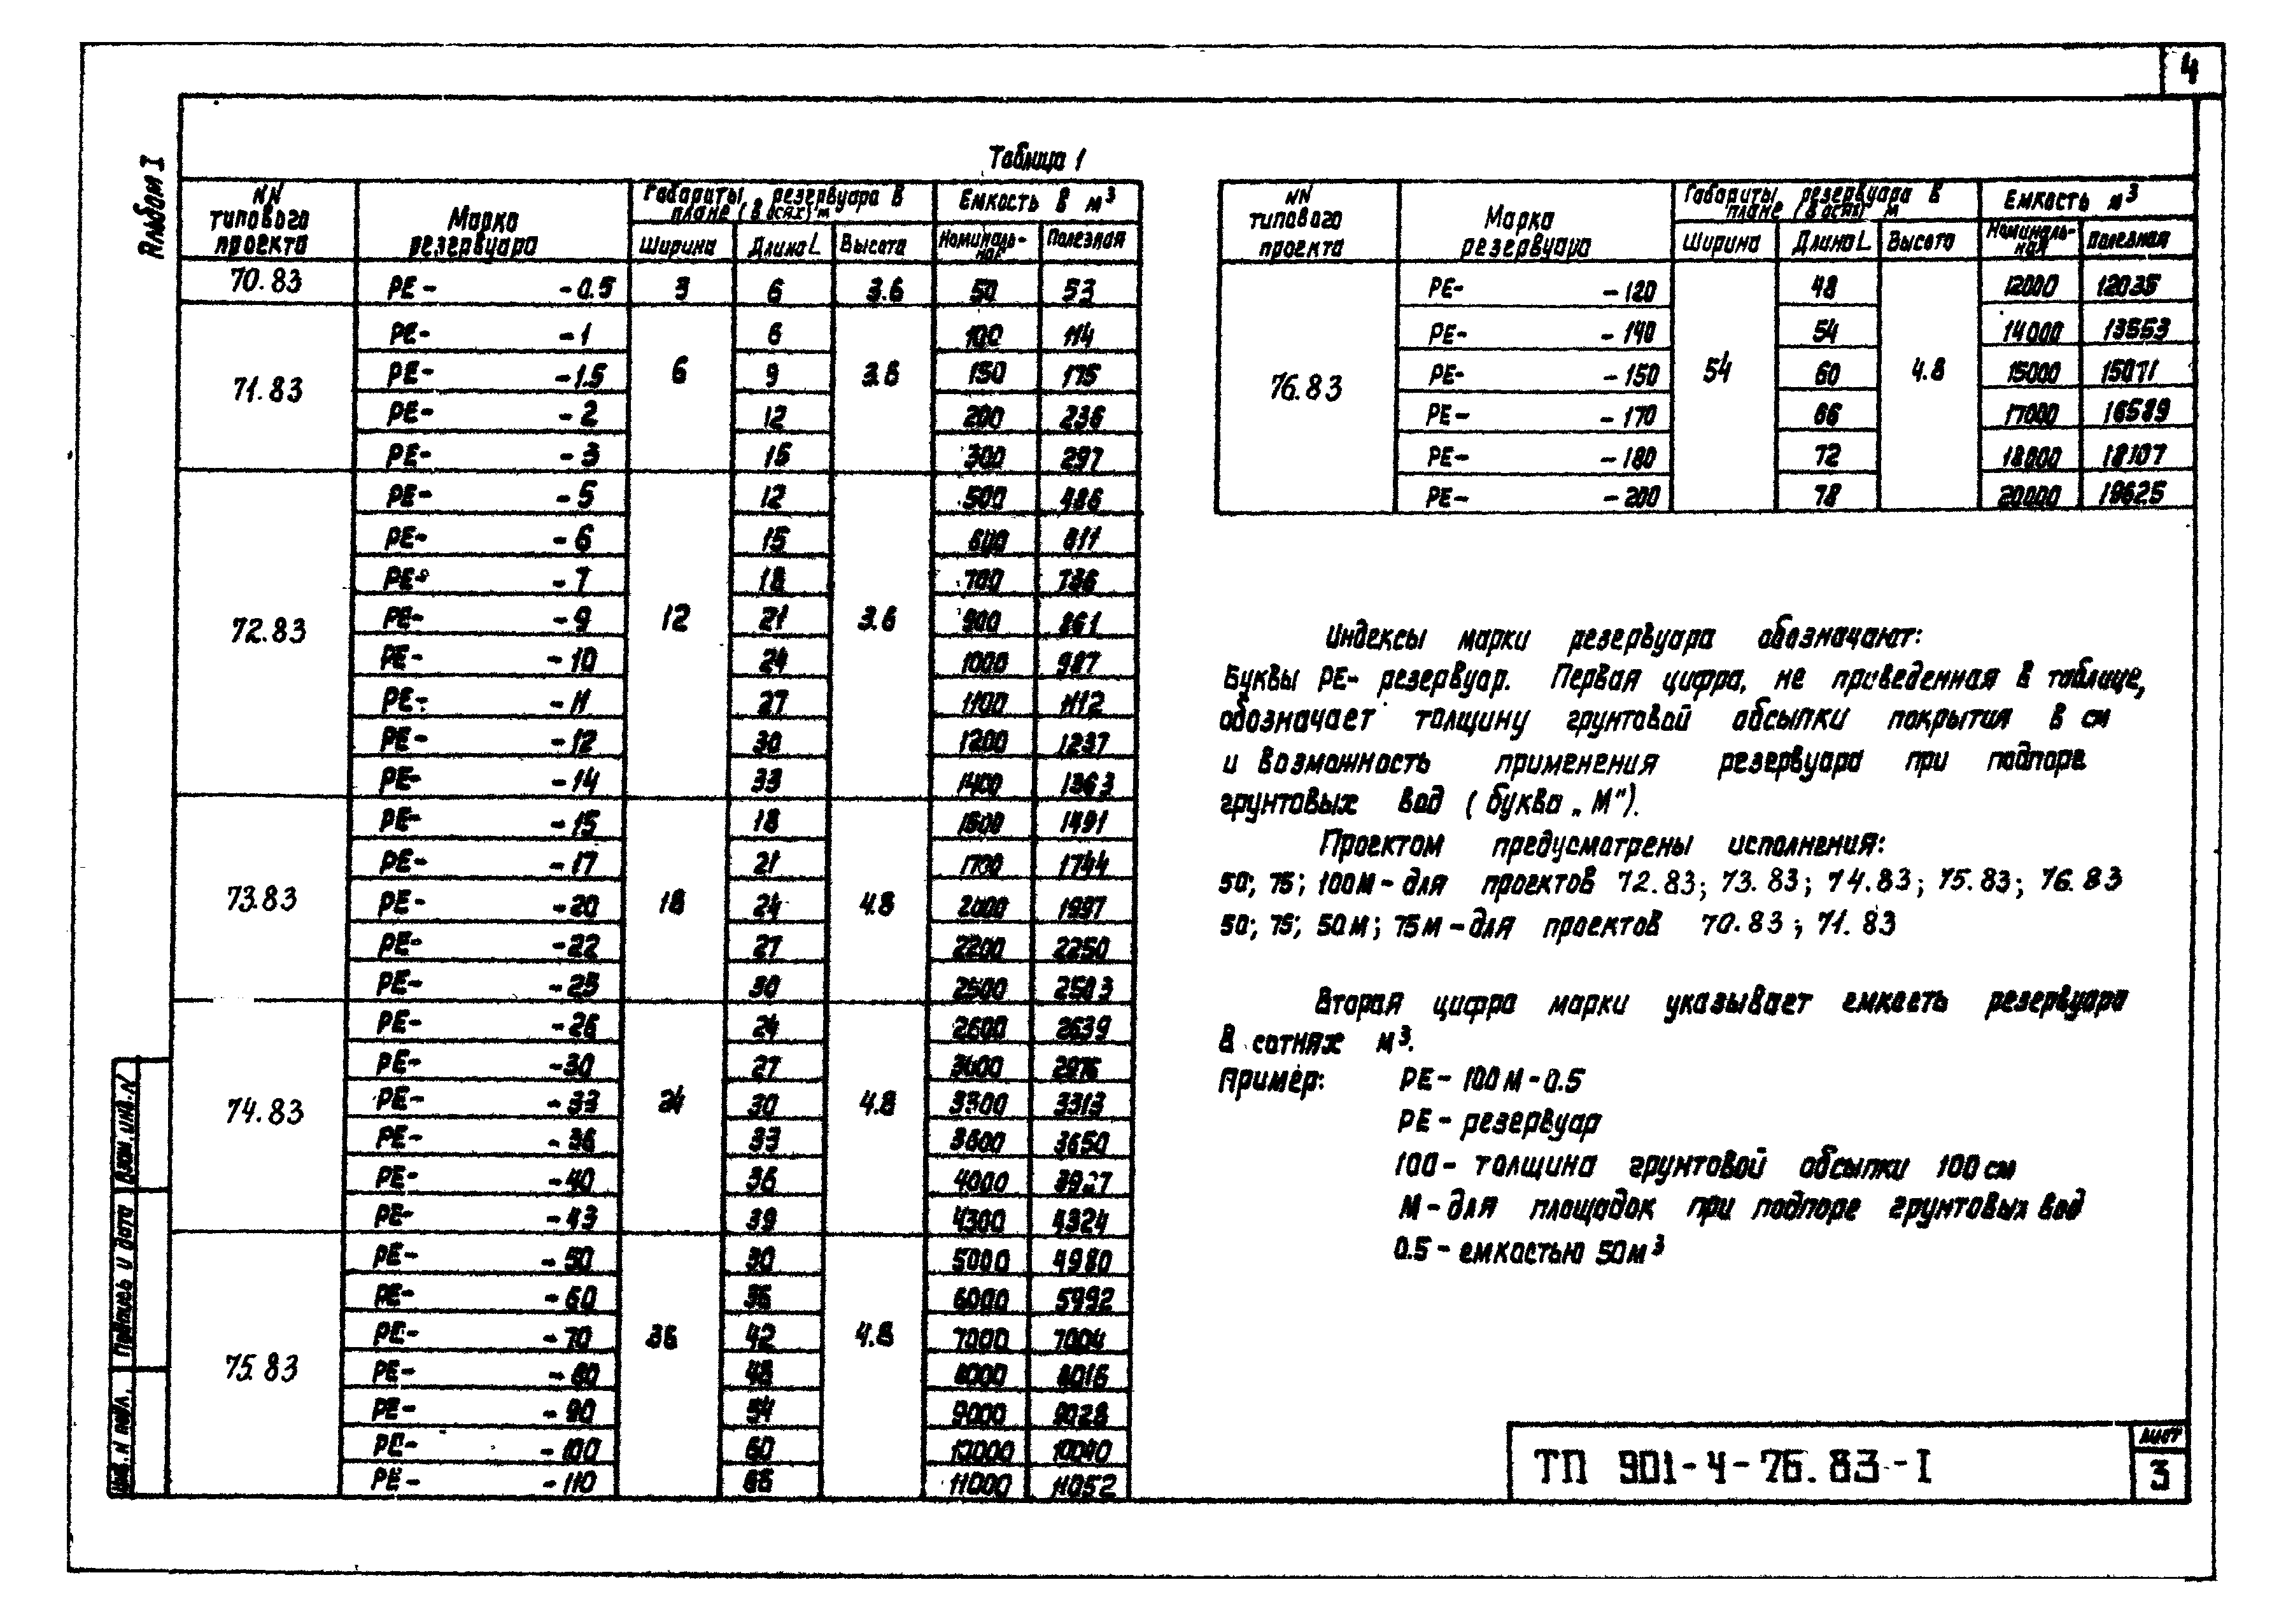 4
Альбом I
Таблица 1
NN типового проекта | Марка резервуара | Габариты резервуара в плане (в осях) м | Емкость в м³
Ширина | Длина L | Высота | Номинальная | Полезная
70.83 | РЕ- -0.5 | 3 | 6 | 3.6 | 50 | 53
71.83 | 6 | 3.6
РЕ- -1 | 6 | 100 | 114
РЕ- -1.5 | 9 | 150 | 175
РЕ- -2 | 12 | 200 | 236
РЕ- -3 | 15 | 300 | 297
72.83 | 12 | 3.6
РЕ- -5 | 12 | 500 | 486
РЕ- -6 | 15 | 600 | 611
РЕ- -7 | 18 | 700 | 736
РЕ- -9 | 21 | 900 | 861
РЕ- -10 | 24 | 1000 | 987
РЕ- -11 | 27 | 1100 | 1112
РЕ- -12 | 30 | 1200 | 1237
РЕ- -14 | 33 | 1400 | 1363
73.83 | 18 | 4.8
РЕ- -15 | 18 | 1500 | 1491
РЕ- -17 | 21 | 1700 | 1744
РЕ- -20 | 24 | 2000 | 1997
РЕ- -22 | 27 | 2200 | 2250
РЕ- -25 | 30 | 2500 | 2503
74.83 | 24 | 4.8
РЕ- -26 | 24 | 2600 | 2639
РЕ- -30 | 27 | 3000 | 2976
РЕ- -33 | 30 | 3300 | 3313
РЕ- -36 | 33 | 3600 | 3650
РЕ- -40 | 36 | 4000
РЕ- -43 | 39 | 4300 | 4324
75.83 | 36 | 4.8
РЕ- -50 | 30 | 5000 | 4980
РЕ- -60 | 36 | 6000 | 5992
РЕ- -70 | 42 | 7000 | 7004
РЕ- -80 | 48 | 8000 | 8016
РЕ- -90 | 54 | 9000 | 9028
РЕ- -100 | 60 | 10000 | 10040
РЕ- -110 | 66 | 11000 | 11052
NN типового проекта | Марка резервуара | Габариты резервуара в плане (в осях) м | Емкость м³
Ширина | Длина L | Высота | Номинальная | Полезная
76.83 | 54 | 4.8
РЕ- -120 | 48 | 12000 | 12035
РЕ- -140 | 54 | 14000 | 13553
РЕ- -150 | 60 | 15000 | 15071
РЕ- -170 | 66 | 17000 | 16589
РЕ- -180 | 72 | 18000 | 18107
РЕ- -200 | 78 | 20000 | 19625
Индексы марки резервуара обозначают:
Буквы РЕ- резервуар. Первая цифра, не приведенная в таблице,
обозначает толщину грунтовой обсыпки покрытия в см
и возможность применения резервуара при подпоре
грунтовых вод (буква „М").
Проектом предусмотрены исполнения:
50; 75; 100М - для проектов 72.83; 73.83; 74.83; 75.83; 76.83
50; 75; 50М; 75М - для проектов 70.83; 71.83
Вторая цифра марки указывает емкость резервуара
в сотнях м³.
Пример: РЕ-100М-0.5
РЕ - резервуар
100 - толщина грунтовой обсыпки 100 см
М - для площадок при подпоре грунтовых вод
0.5 - емкостью 50м³
Взам. инв. N
Подпись и дата
Инв. N подл.
ТП 901-4-76.83-I
лист
3